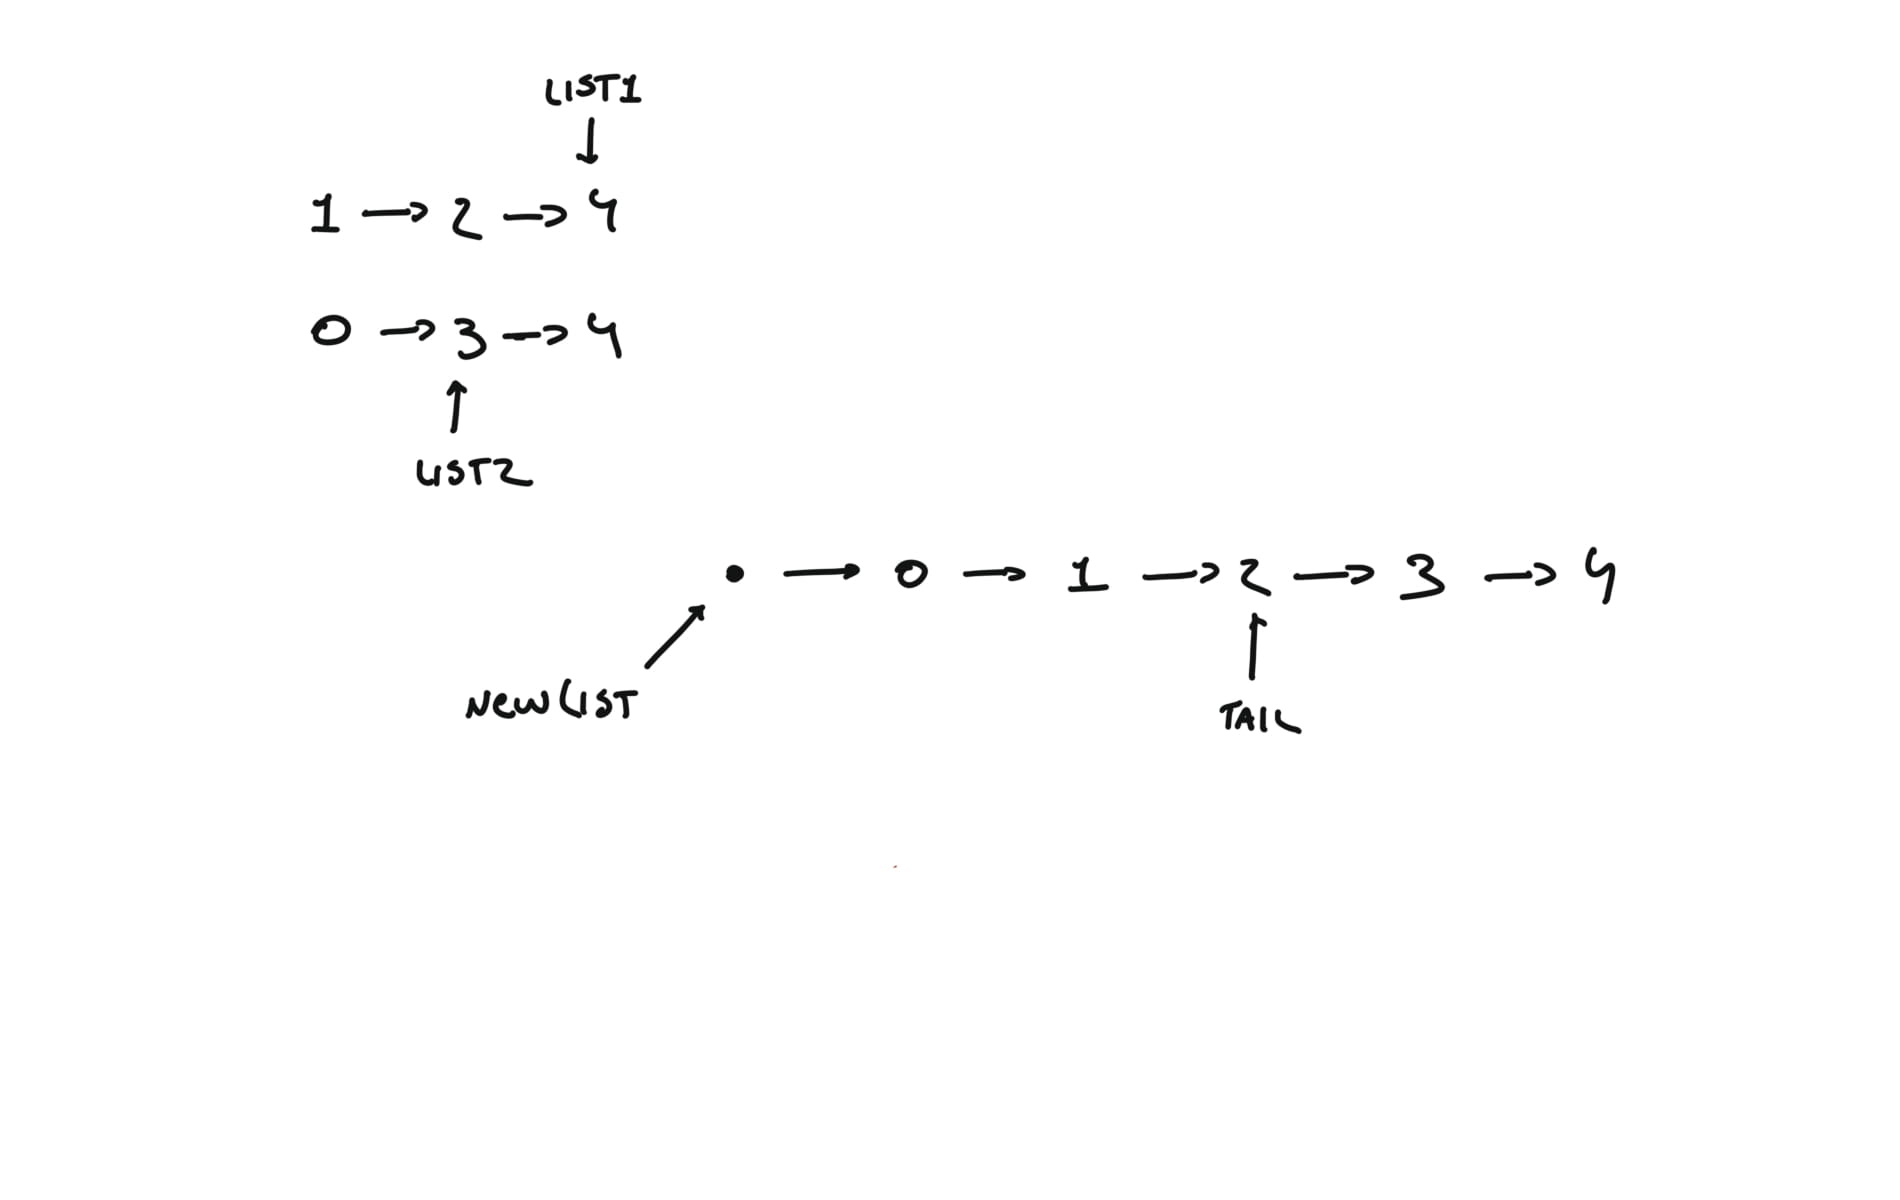 LIST1
↓
1 → 2 → 4
0 → 3 → 4
↑
LIST2
• → 0 → 1 → 2 → 3 → 4
NEWLIST
TAIL